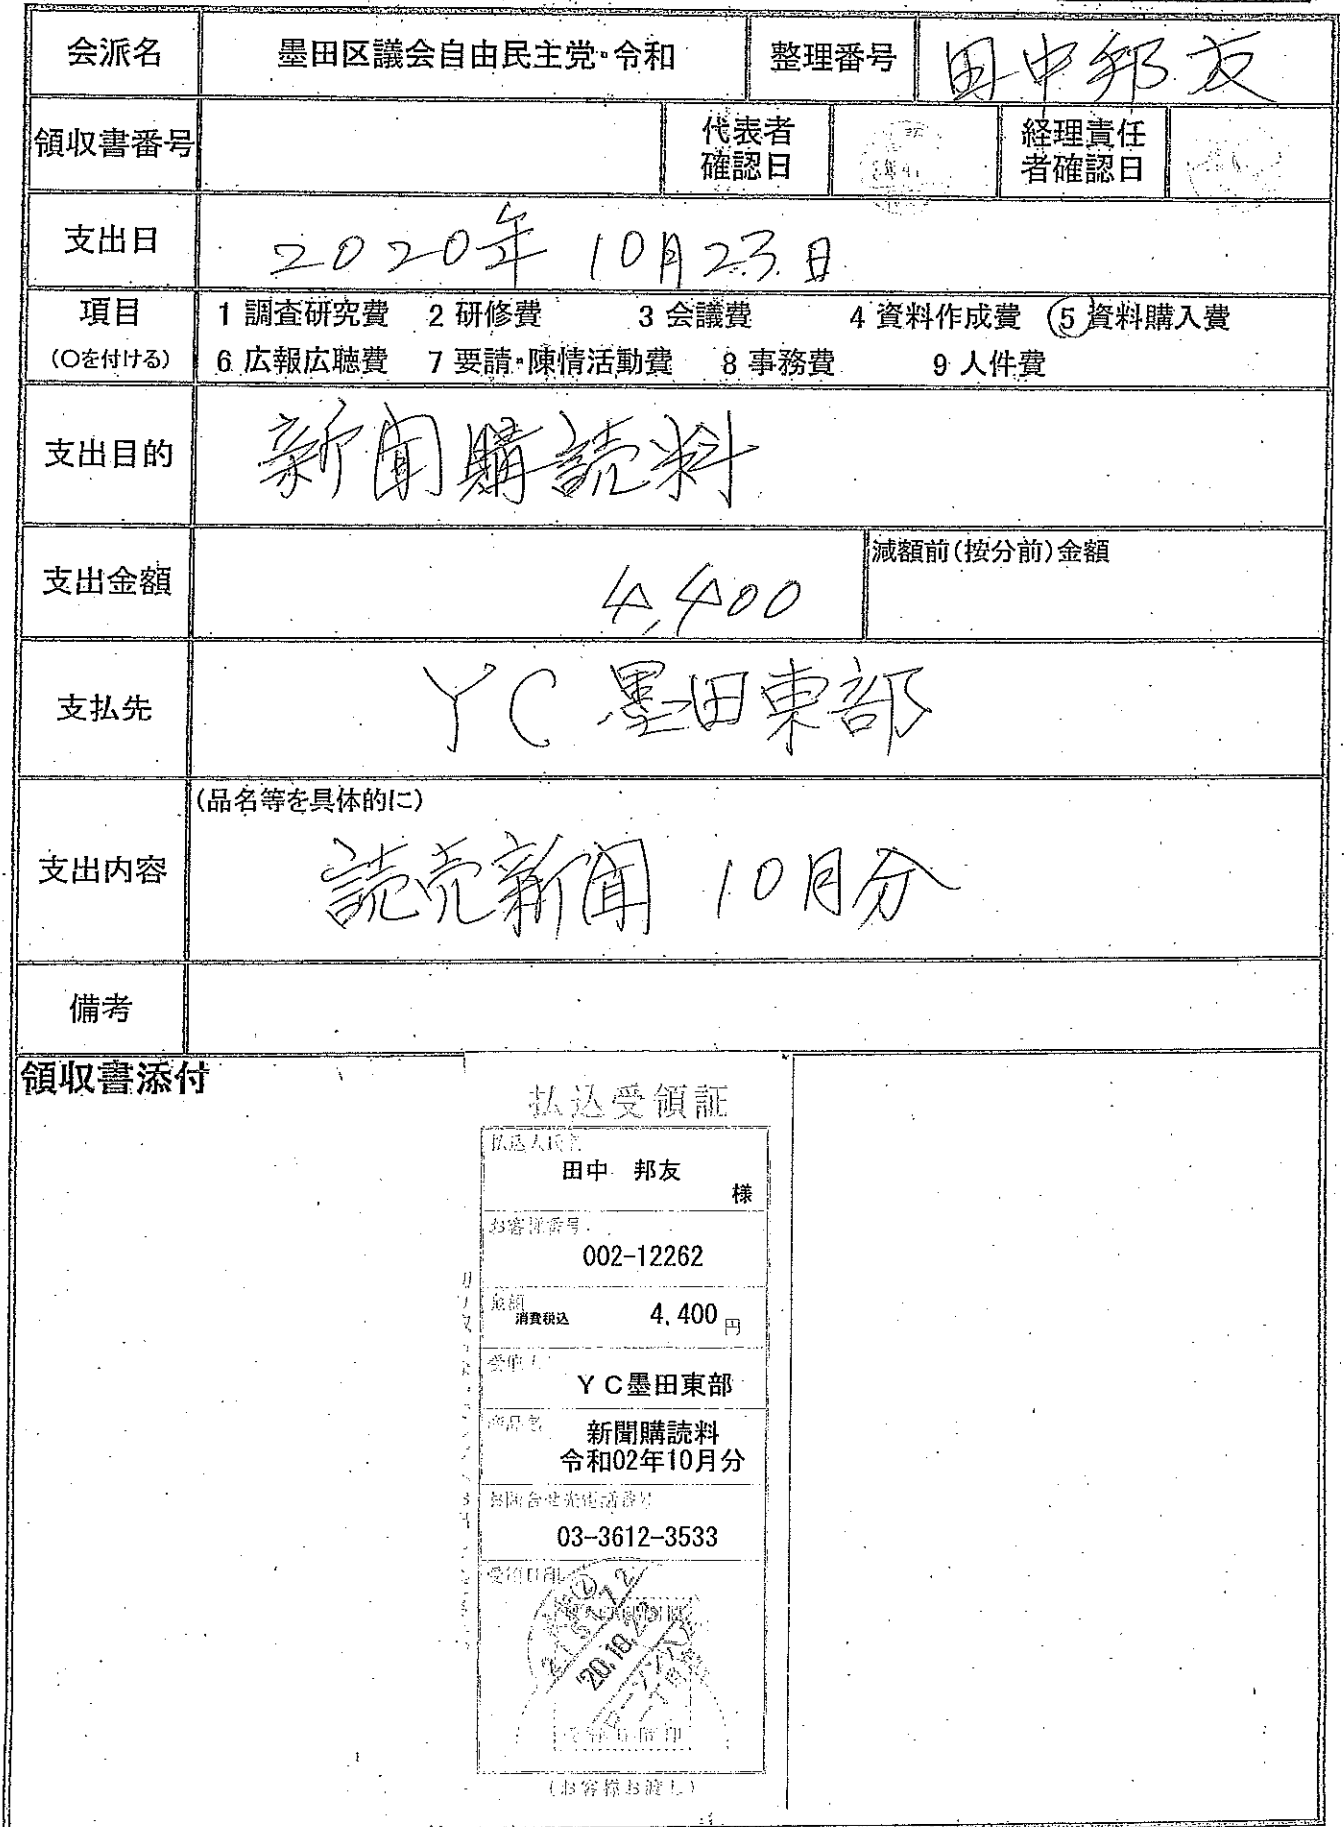 会派名 墨田区議会自由民主党・令和 整理番号 田中邦友
領収書番号 代表者確認日 経理責任者確認日
支出日 2020年 10月23日
項目 1 調査研究費 2 研修費 3 会議費 4 資料作成費 5 資料購入費
(○を付ける) 6 広報広聴費 7 要請・陳情活動費 8 事務費 9 人件費
支出目的 新聞購読料
支出金額 4,400 減額前(按分前)金額
支払先 YC 墨田東部
(品名等を具体的に)
支出内容 読売新聞 10月分
備考
領収書添付
払込受領証
払込人氏名
田中 邦友
様
お客様番号
002-12262
金額
消費税込 4,400 円
受取人
YC墨田東部
商品名 新聞購読料
令和02年10月分
お問合せ先電話番号
03-3612-3533
(お客様お渡し)